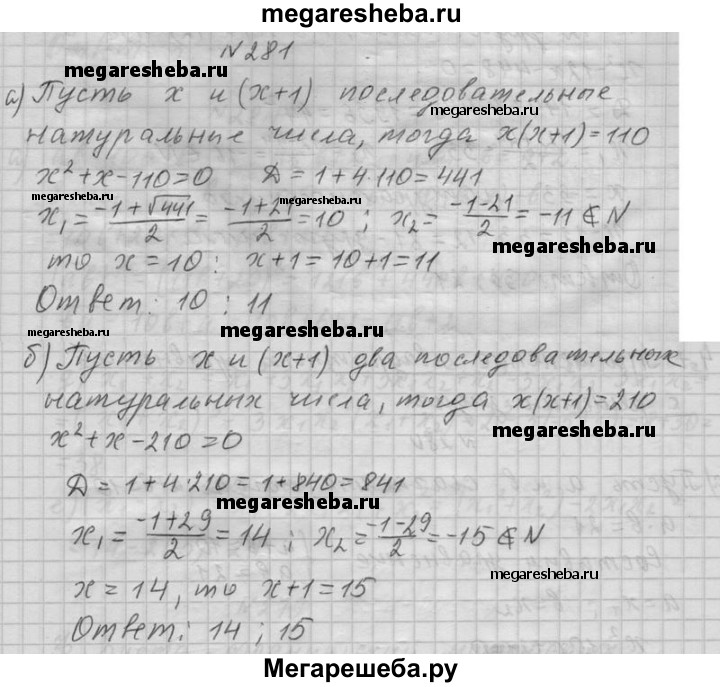 megaresheba.ru
N 281
megaresheba.ru
а) Пусть x и (x+1) последовательные
megaresheba.ru
натуральные числа, тогда x(x+1)=110
x²+x-110=0 Д=1+4·110=441
megaresheba.ru megaresheba.ru
x₁=(-1+√441)/2=(-1+21)/2=10; x₂=(-1-21)/2=-11∉N
megaresheba.ru
то x=10: x+1=10+1=11
Ответ: 10; 11
megaresheba.ru megaresheba.ru
б) Пусть x и (x+1) два последовательных
натуральных числа, тогда x(x+1)=210
x²+x-210=0
Д=1+4·210=1+840=841
megaresheba.ru
x₁=(-1+29)/2=14; x₂=(-1-29)/2=-15∉N
megaresheba.ru
x=14, то x+1=15
Ответ: 14; 15
Мегарешеба.ру